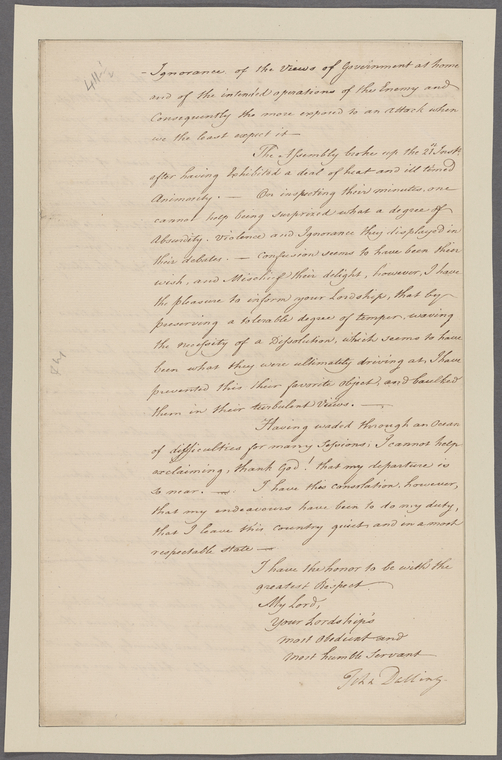 - Ignorance of the Views of Government at home
and of the intended operations of the Enemy and
Consequently the more exposed to an attack when
we the least expect it —
The Assembly broke up the 2d Instt.
after having Exhibited a deal of heat and ill timed
Animosity. — On inspecting their minutes, one
cannot help being surprized what a degree of
Absurdity, Violence and Ignorance they displayed in
their debates. — Confusion seems to have been their
wish, and Mischief their delight, however, I have
the pleasure to inform your Lordship, that by
preserving a tolerable degree of temper, waving
the necessity of a Dissolution, which seems to have
been what they were ultimately driving at, I have
prevented this their favorite object, and baulked
them in their turbulent Views. —
Having waded through an Ocean
of difficulties for many Sessions, I cannot help
exclaiming, thank God! that my departure is
so near. — I have this consolation, however,
that my endeavours have been to do my duty,
that I leave this Country quiet and in a most
respectable state —
I have the honor to be with the
greatest Respect
My Lord,
Your Lordship's
most obedient and
most humble Servant
John Dalling.